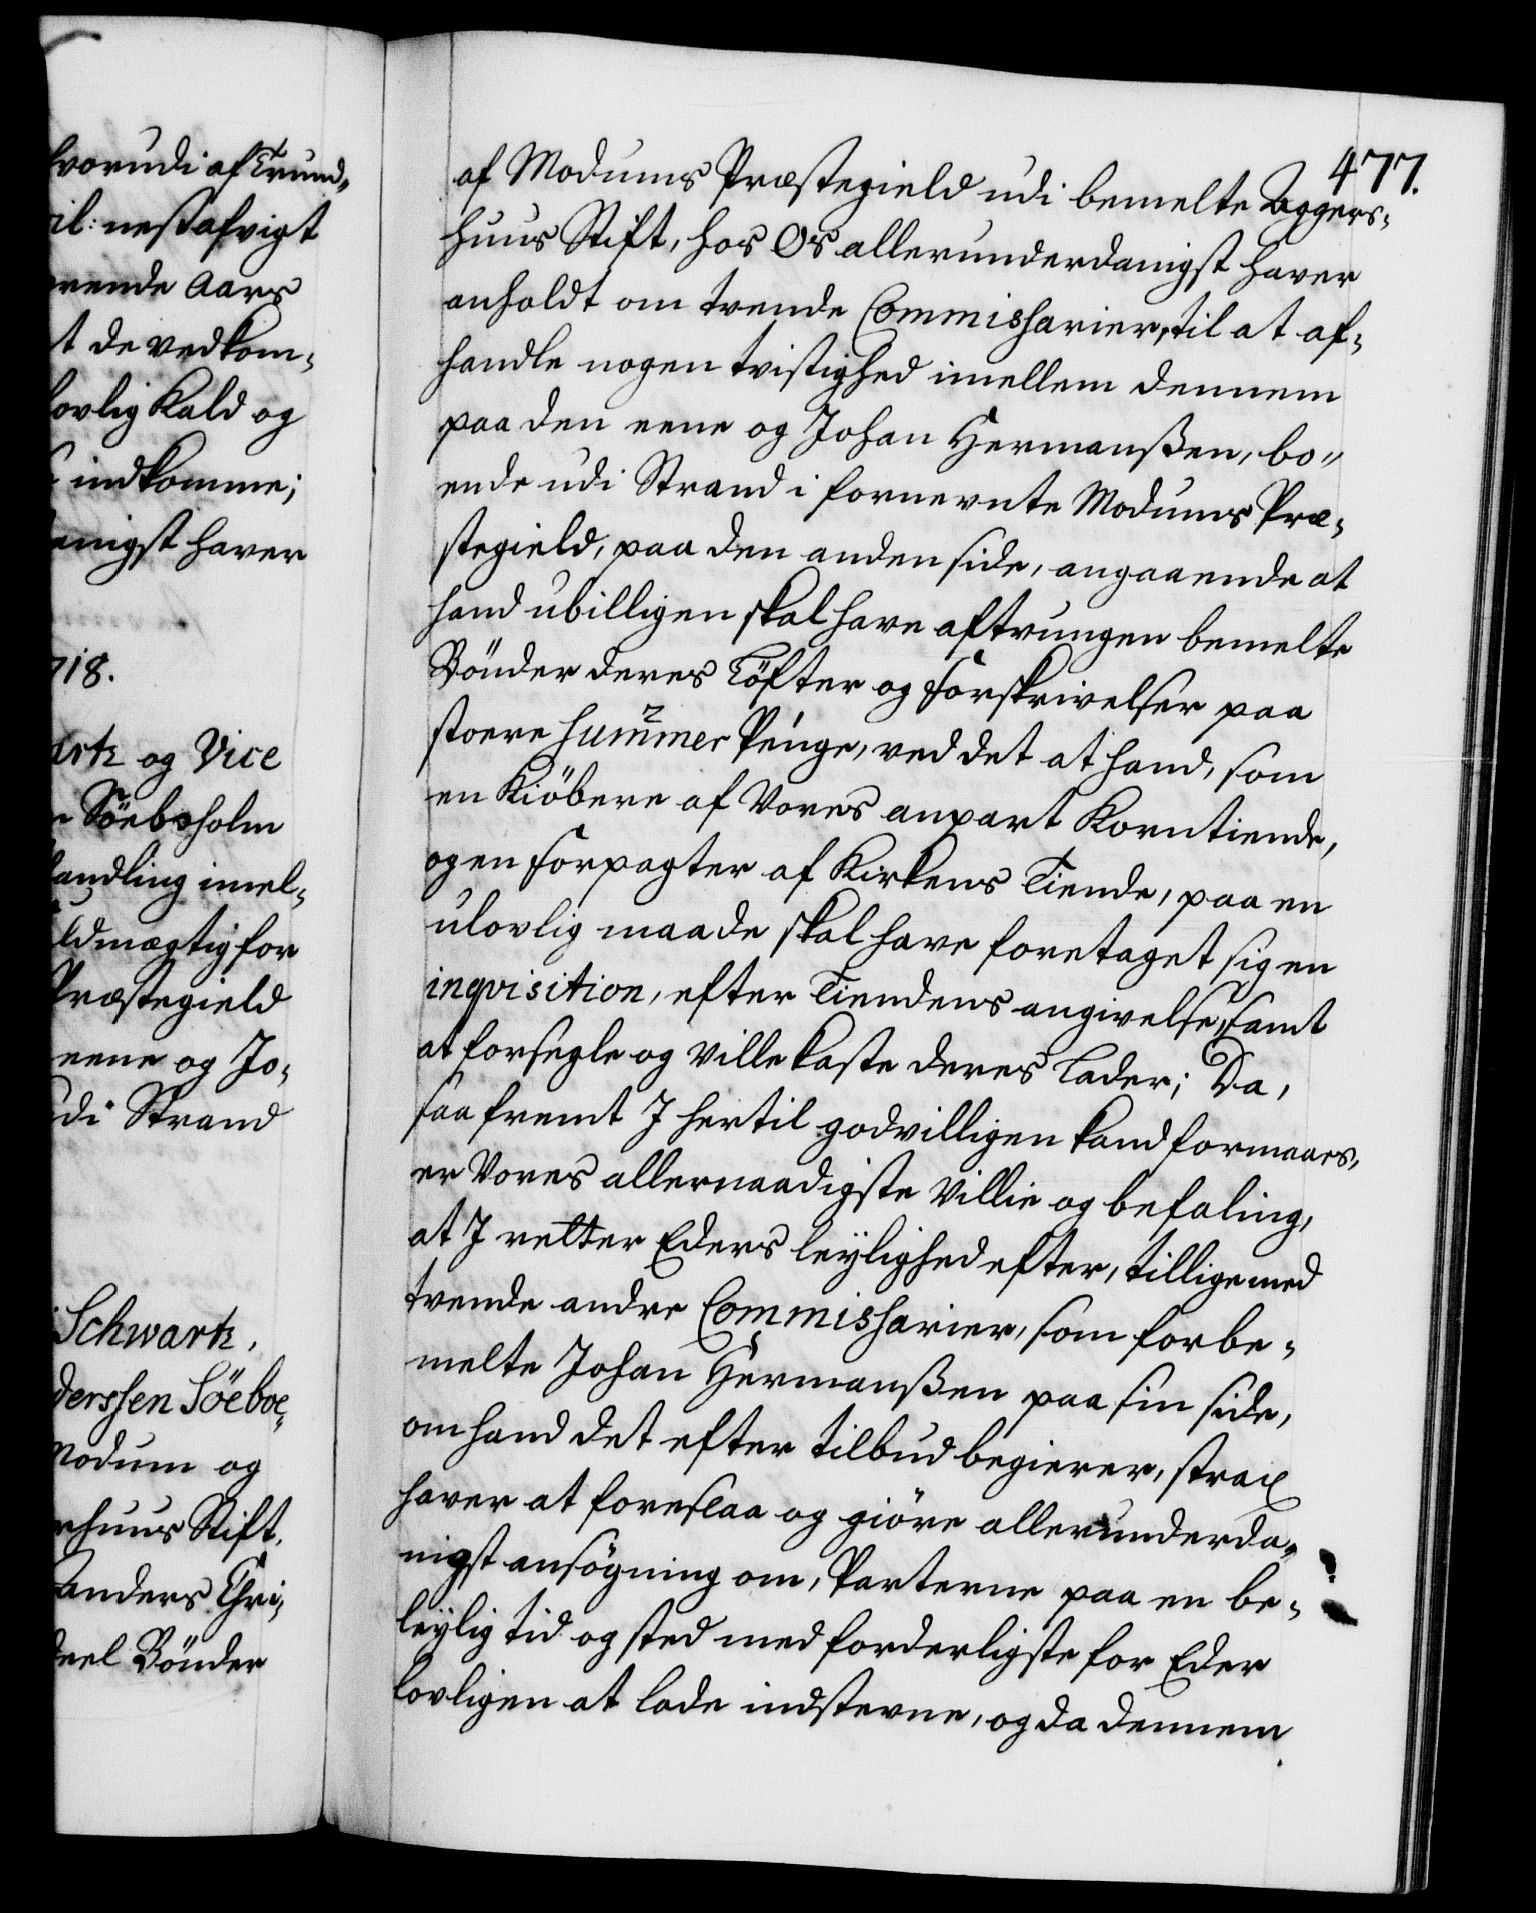 vorudi af Trund-
il: nest afvigt
rende Aars
t de vedkom-
ovlig Kald og
indkomme;
anigst haver
718.
artz og Vice
Söebsholm
andling imel-
ldmægtig for
Præstegield
eene og Jo-
udi Strand
Schwartz.
derssen Söeboe,
Modum og
rhuus Stift.
Anders Chri-
deel Bönder
477.
af Modums Præstegield udi bemelte Aggers-
huus Stift, hos Os allerunderdanigst haver
anholdt om tvende Commissarier, til at af-
handle nogen tvistighed imellem dennem
paa den eene og Johan Hermanßen, bo-
ende udi Strand i fornevnte Modums Præ-
stegield, paa den anden side, angaaende at
hand ubilligen skal have aftvungen bemelte
Bönder deres Löfter og Forskrivelser paa
stoere Summer Penge, ved det at hand, som
en Kiöbere af Vores anpart Korntiende,
og en Forpagter af Kirkens Tiende, paa en
ulovlig maade skal have foretaget sig en
inqvisition, efter Tiendens angivelse, samt
at forsegle og ville kaste deres Lader; Da,
saa fremt I hertil godvilligen kand formaaes,
er Vores allernaadigste Villie og befaling,
at I retter Eders leylighed efter, tillige med
tvende andre Commissarier, som forbe-
melte Johan Hermanßen paa sin side,
om hand det efter tilbud begierer, strax
haver at foreslaa og giöre allerunderda-
nigst ansögning om, Parterne paa en be-
leylig tid og sted med forderligste for Eder
lovligen at lade indstevne, og da dennem